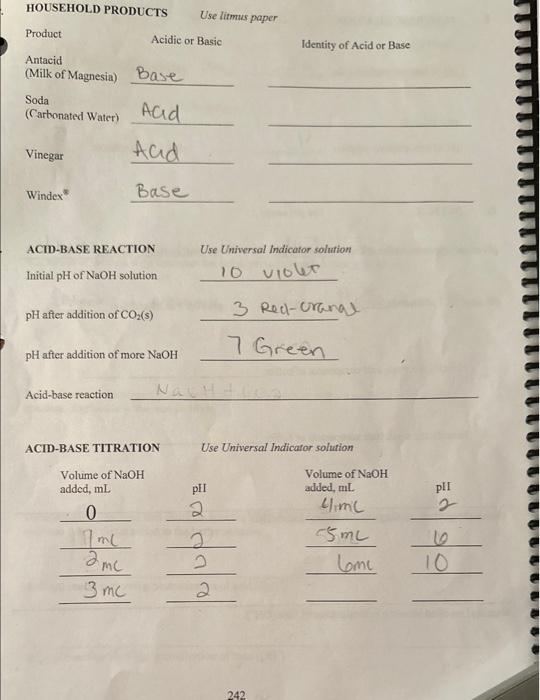 HOUSEHOLD PRODUCTS Use litmus paper
Product Acidic or Basic Identity of Acid or Base
Antacid
(Milk of Magnesia) Base
Soda
(Carbonated Water) Acid
Vinegar Acid
Windex® Base
ACID-BASE REACTION Use Universal Indicator solution
Initial pH of NaOH solution 10 violet
pH after addition of CO₂(s) 3 Red-orange
pH after addition of more NaOH 7 Green
Acid-base reaction
ACID-BASE TITRATION Use Universal Indicator solution
Volume of NaOH Volume of NaOH
added, mL pH added, mL pH
0 2 4 mL 2
1 mL 2 5 mL 6
2 mL 2 6 mL 10
3 mL 2
242